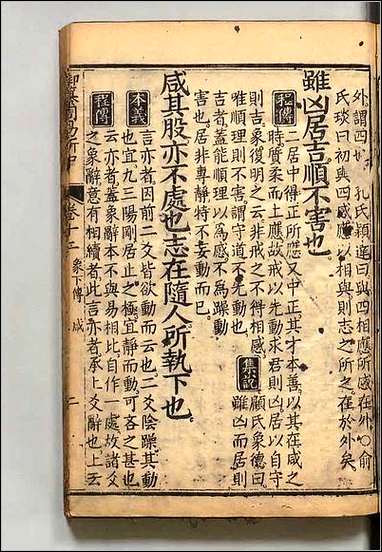 外。謂四也。 孔氏穎達曰與四相應所感在外 ○俞
氏琰曰初與四感應以相與則志之所之在於外矣。
雖凶居吉順不害也。
程傳 二居中得正所應又中正其才本善以其在咸之
時質柔而上應故戒以先動求君則凶居以自守
則吉象復明之云非戒之不得相感
唯順理則不害謂守道不先動也
集說 顧氏象德曰
雖凶而居則
吉者蓋能順理以為感不為躁動
害也居非專靜特不妄動而已。
咸其股亦不處也志在隨人所執下也。
本義 言亦者因前二爻皆欲動而云也二爻陰躁其動
也宜九三陽剛居止之極宜靜而動可吝之甚也
程傳 云亦者蓋象辭本不與易相比自作一處故諸爻
之象辭意有相續者此言亦者承上爻辭也上云
御纂周易折中 卷十二 象下傳 咸 二